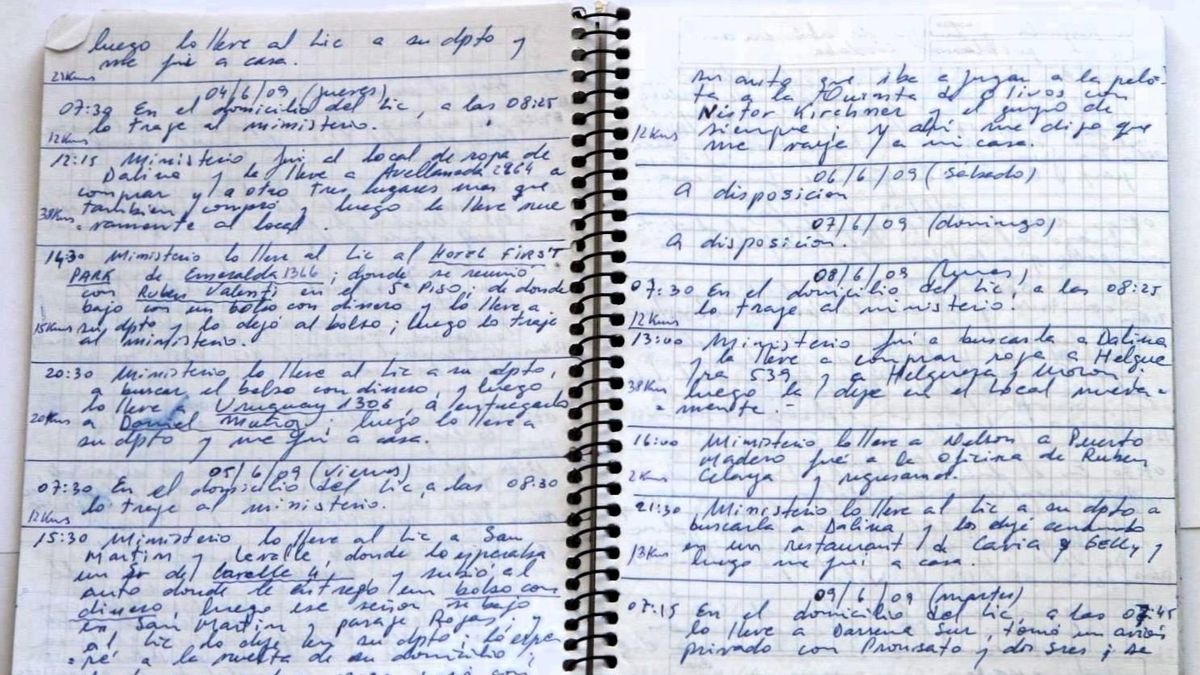 luego lo lleve al Lic a su dpto y
me fui a casa.
23Kms
04/6/09 (jueves)
07:30 En el domicilio del Lic, a las 08:25
lo traje al ministerio.
12Kms
12:15 Ministerio fui al local de ropa de
Dalina y la lleve a Avellaneda 2964 a
comprar y a otro tres lugares mas que
tambien compró y luego la lleve nue
38Kms
-vamente al local.
14:30 Ministerio lo lleve al Lic al HOTEL FIRST
PARK de Esmeralda 1366; donde se reunió
con Ruben Valenti en el 5º PISO; de donde
bajo con un bolso con dinero y lo lleve a
15Kms su dpto y lo dejó al bolso; luego lo traje
al ministerio.
20:30 Ministerio lo lleve al Lic a su dpto,
a buscar el bolso con dinero y luego
lo lleve a Uruguay 1306, a entregarlo
20Kms a Daniel Muñoz; luego lo lleve a
su dpto y me fui a casa.
05/6/09 (viernes)
07:30 En el domicilio del Lic, a las 08:30
lo traje al ministerio.
12Kms
15:30 Ministerio lo lleve al Lic a San
Martin y Lavalle, donde lo esperaba
un Sr de y subió al
auto donde le entregó un bolso con
dinero, luego ese señor se bajo
en San Martin y paraje Rojas, y
al Lic lo deje en su dpto; lo espe
-ré a la vuelta de su domicilio;
su auto que iba a jugar a la pelo-
ta a la Quinta de Olivos con
Nestor Kirchner y el grupo de
12Kms siempre; y ahi me dijo que
me vaya a mi casa.
06/6/09 (Sabado)
A disposicion
07/6/09 (domingo)
A disposicion.
08/6/09 (lunes)
07:30 En el domicilio del Lic, a las 08:25
lo traje al ministerio.
12Kms
13:00 Ministerio fui a buscarla a Dalina
y la lleve a comprar ropa a Helgue
ra 539 y a Helguera y Moron;
38Km luego la deje en el local nueva-
-mente.-
16:00 Ministerio lo lleve a Nelson a Puerto
Madero fué a la oficina de Ruben
2Kms y regresand.
21:30 Ministerio lo lleve al Lic a su dpto a
buscarla a Dalina y los dejé cenando
13Km en un restaurant de Cavia y Gelly y
luego me fui a casa.
09/6/09 (martes)
07:15 En el domicilio del Lic, a las 07:45
lo lleve a Darsena Sur, tomó un avion
privado con y dos sres; se